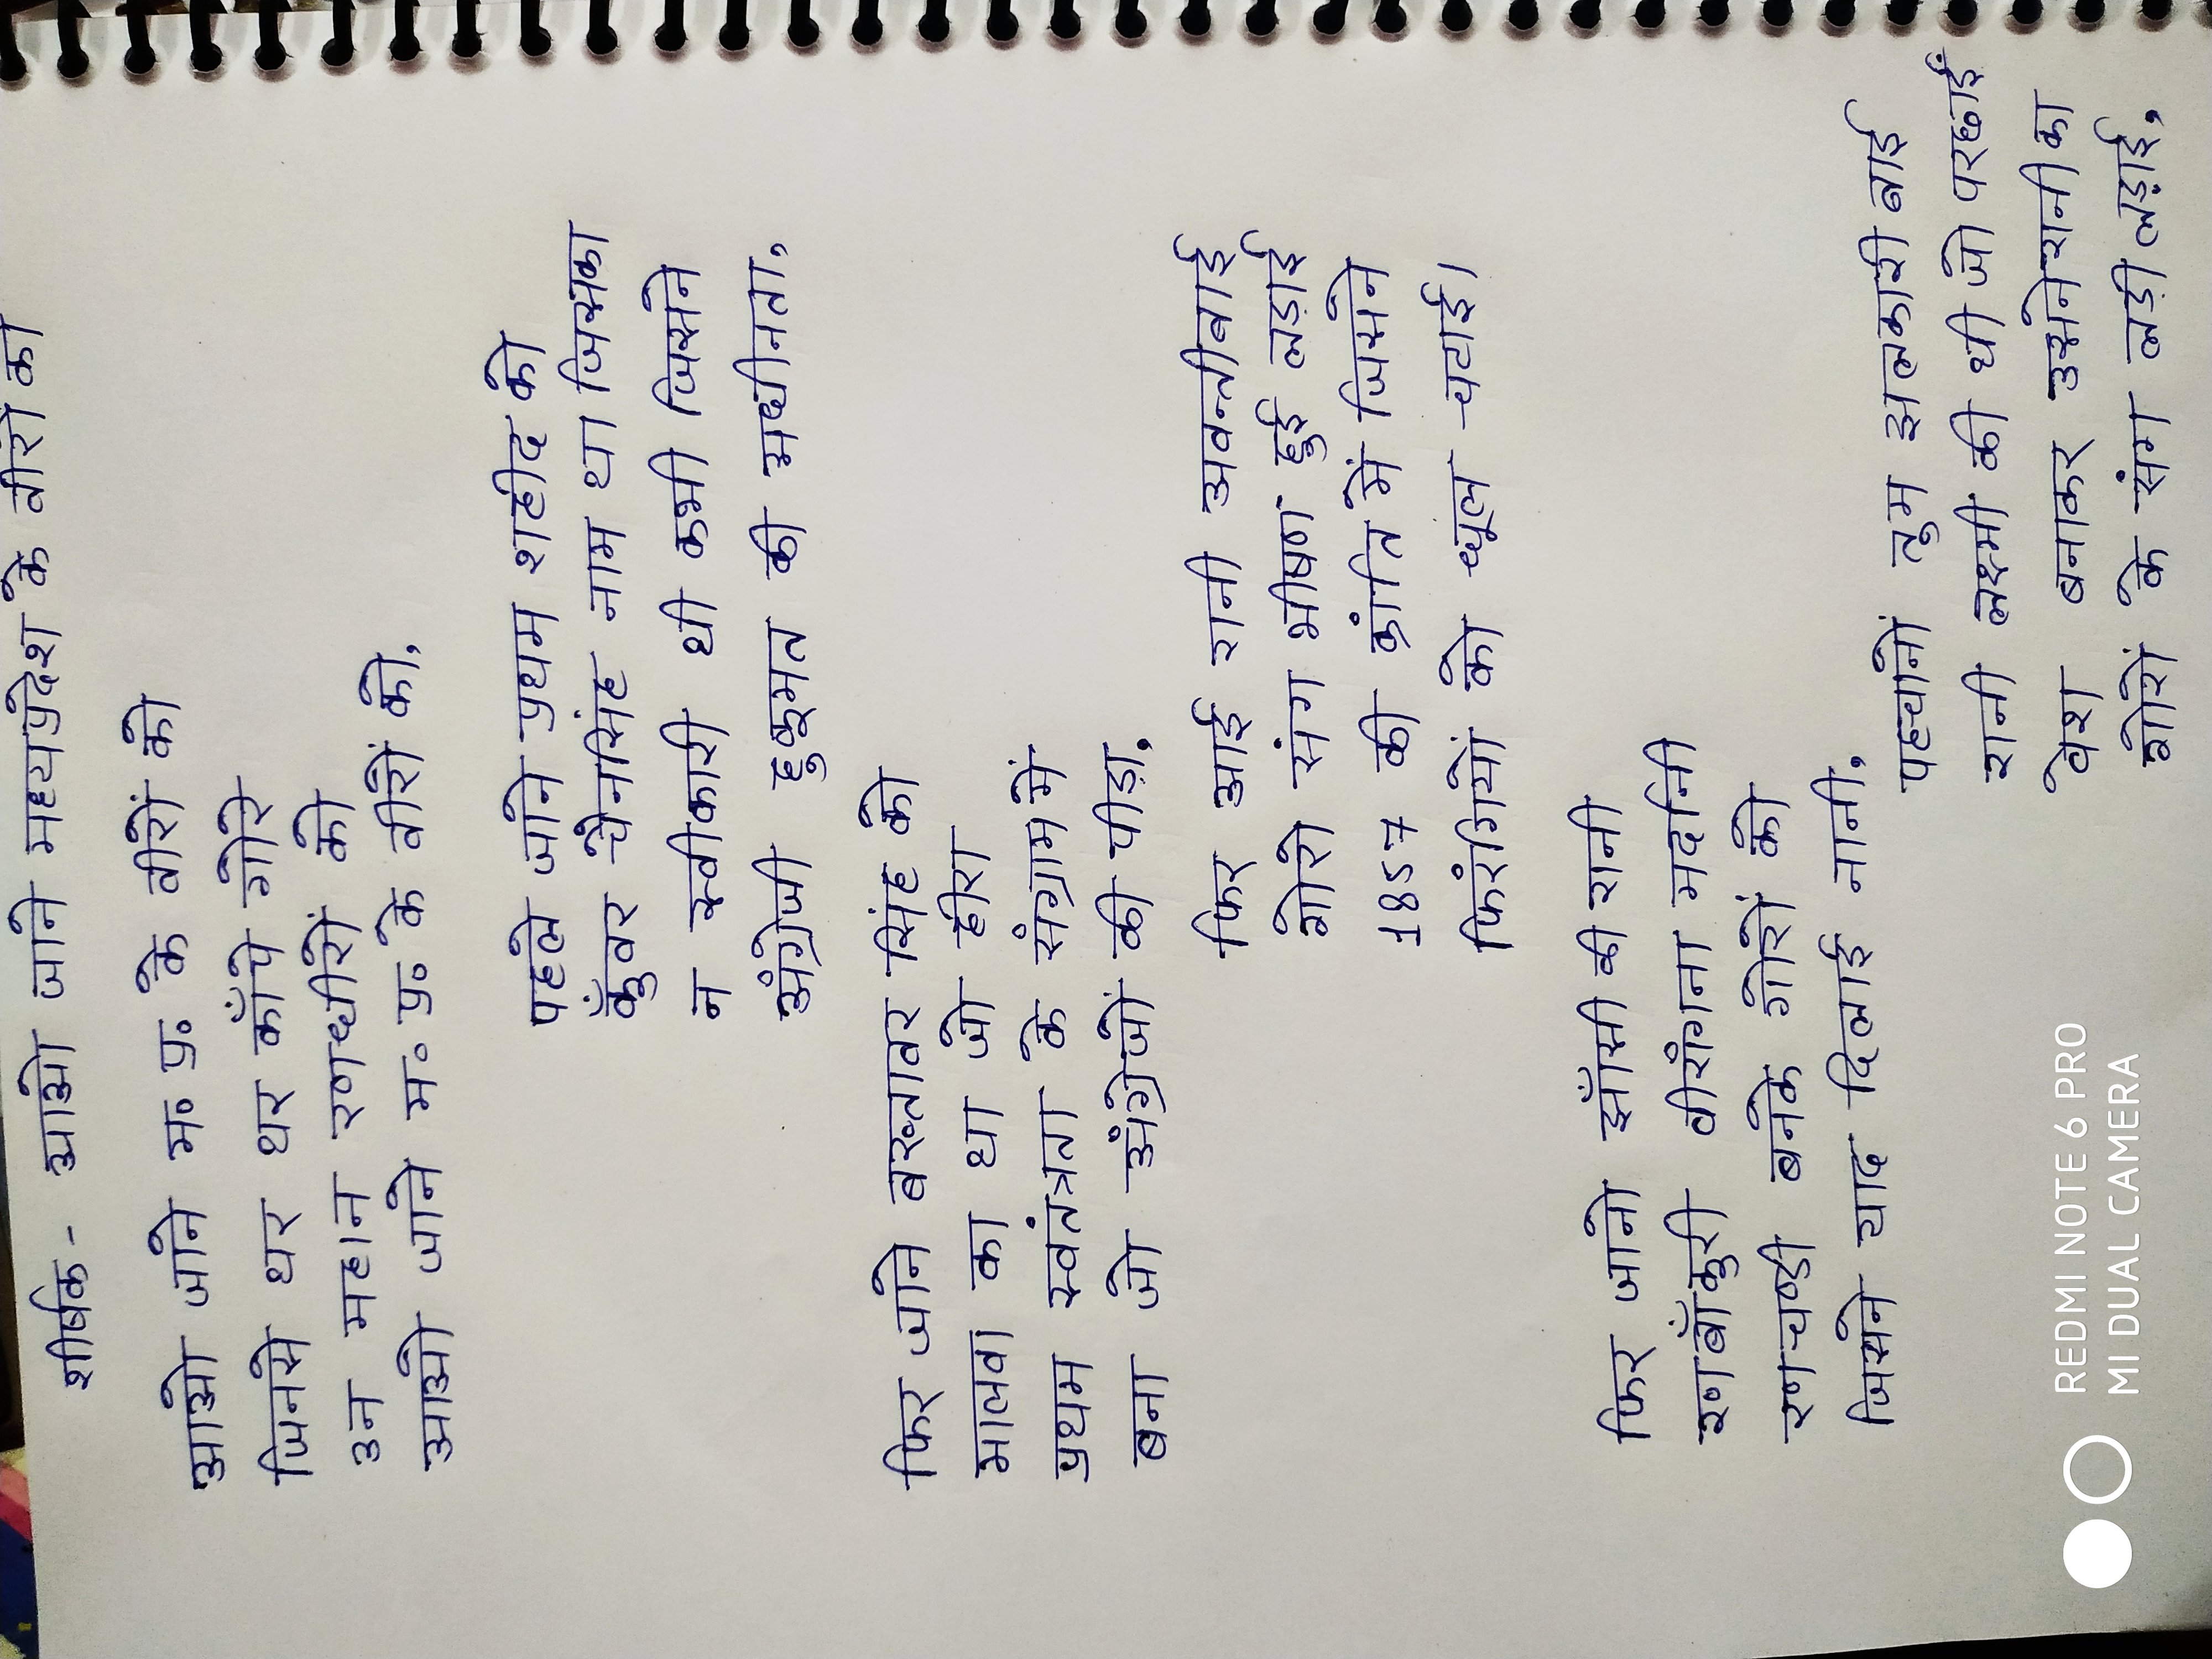 शीर्षक- आओ जाने मध्यप्रदेश के वीरों को
आओ जाने म. प्र. के वीरों को
जिनसे थर थर काँपे गोरे
उन महान रणधीरों को
आओ जाने म. प्र. के वीरों को.
पहले जाने प्रथम शहीद को
कुँवर चैनसिंह नाम था जिसका
न स्वीकारी थी कभी जिसने
अंग्रेजी हुकूमत की अधीनता.
फिर जाने बख्तावर सिंह को
मालवा का था जो हीरा
प्रथम स्वतंत्रता के संग्राम में
बना जो अंग्रेजों की पीड़ा.
फिर आई रानी अवन्तीबाई
गोरो संग भीषण हुई लड़ाई
1857 की क्रांति में जिसने
फिरंगियों को धूल चटाई।
फिर जानो झाँसी की रानी
रणबाँकुरी वीरांगना मर्दानी
रणचण्डी बनके गोरों को
जिसने याद दिलाई नानी.
पहचानों तुम झलकारी बाई
रानी लक्ष्मी की थी जो परछाई
वेश बनाकर उसने रानी का
गोरों के संग लड़ी लड़ाई.
REDMI NOTE 6 PRO
MI DUAL CAMERA